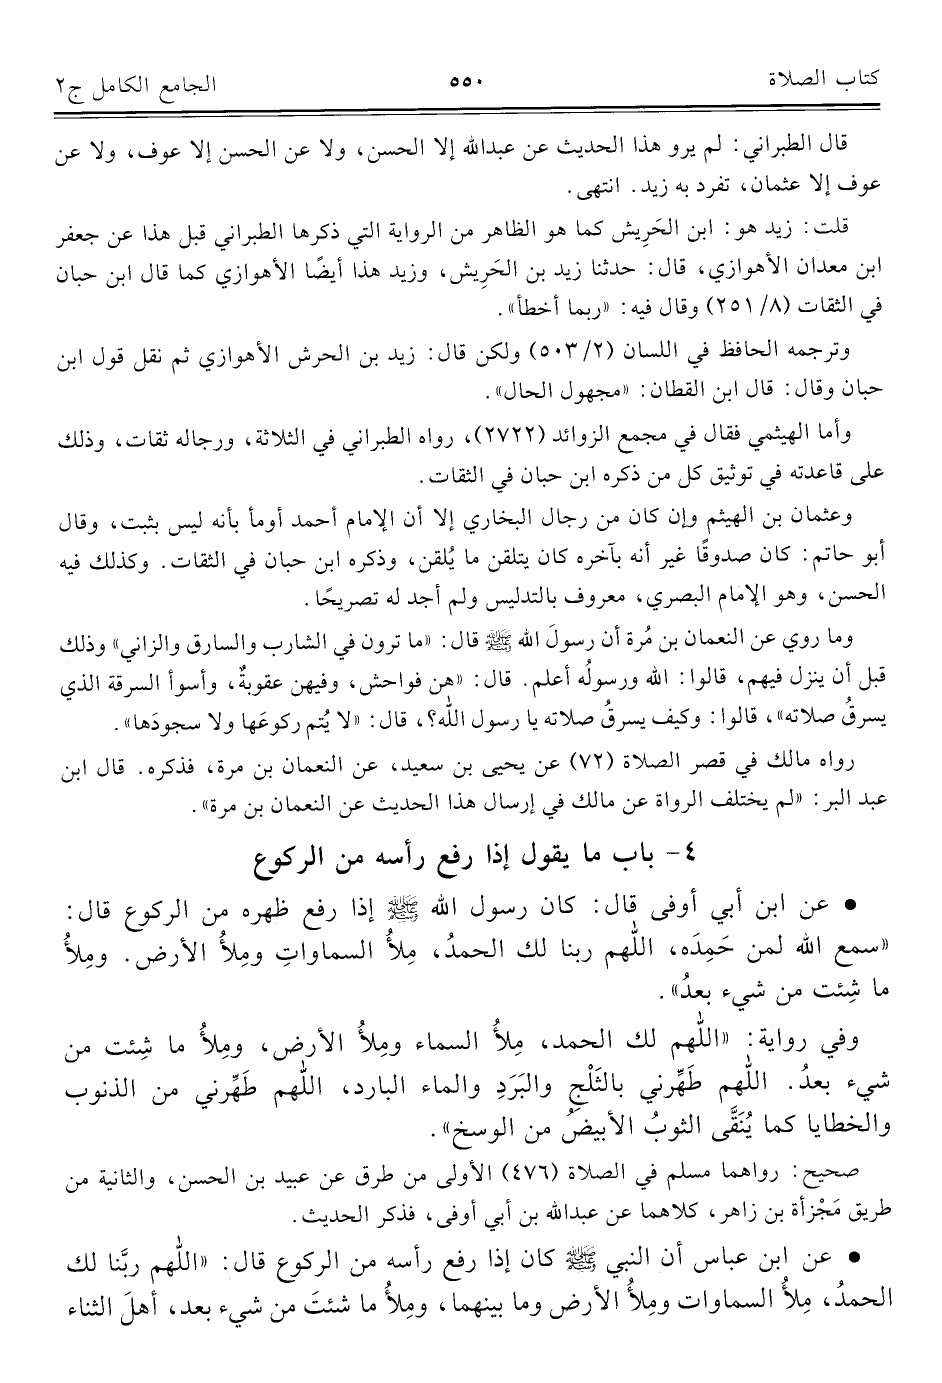 كتاب الصلاة ٥٥٠ الجامع الكامل ج٢
قال الطبراني: لم يرو هذا الحديث عن عبدالله إلا الحسن، ولا عن الحسن إلا عوف، ولا عن
عوف إلا عثمان، تفرد به زيد. انتهى.
قلت: زيد هو: ابن الحَرِيش كما هو الظاهر من الرواية التي ذكرها الطبراني قبل هذا عن جعفر
ابن معدان الأهوازي، قال: حدثنا زيد بن الحَرِيش، وزيد هذا أيضًا الأهوازي كما قال ابن حبان
في الثقات (٨/ ٢٥١) وقال فيه: «ربما أخطأ».
وترجمه الحافظ في اللسان (٢/ ٥٠٣) ولكن قال: زيد بن الحرش الأهوازي ثم نقل قول ابن
حبان وقال: قال ابن القطان: «مجهول الحال».
وأما الهيثمي فقال في مجمع الزوائد (٢٧٢٢)، رواه الطبراني في الثلاثة، ورجاله ثقات، وذلك
على قاعدته في توثيق كل من ذكره ابن حبان في الثقات.
وعثمان بن الهيثم وإن كان من رجال البخاري إلا أن الإمام أحمد أومأ بأنه ليس بثبت، وقال
أبو حاتم: كان صدوقًا غير أنه بآخره كان يتلقن ما يُلقن، وذكره ابن حبان في الثقات. وكذلك فيه
الحسن، وهو الإمام البصري، معروف بالتدليس ولم أجد له تصريحًا.
وما روي عن النعمان بن مُرة أن رسولَ الله ﷺ قال: «ما ترون في الشارب والسارق والزاني» وذلك
قبل أن ينزل فيهم، قالوا: الله ورسولُه أعلم. قال: «هن فواحش، وفيهن عقوبةٌ، وأسوأ السرقة الذي
يسرقُ صلاته»، قالوا: وكيف يسرقُ صلاته يا رسول الله؟، قال: «لا يُتم ركوعَها ولا سجودَها».
رواه مالك في قصر الصلاة (٧٢) عن يحيى بن سعيد، عن النعمان بن مرة، فذكره. قال ابن
عبد البر: «لم يختلف الرواة عن مالك في إرسال هذا الحديث عن النعمان بن مرة».
٤- باب ما يقول إذا رفع رأسه من الركوع
• عن ابن أبي أوفى قال: كان رسول الله ﷺ إذا رفع ظهره من الركوع قال:
«سمع الله لمن حَمِدَه، اللّٰهم ربنا لك الحمدُ، مِلأُ السماواتِ ومِلأُ الأرض. ومِلأُ
ما شِئت من شيء بعدُ».
وفي رواية: «اللّٰهم لك الحمد، مِلأُ السماء ومِلأُ الأرض، ومِلأُ ما شِئت من
شيء بعدُ. اللّٰهم طَهِّرني بالثَلْجِ والبَرَدِ والماء البارد، اللّٰهم طَهِّرني من الذنوب
والخطايا كما يُنَقَّى الثوبُ الأبيضُ من الوسخ».
صحيح: رواهما مسلم في الصلاة (٤٧٦) الأولى من طرق عن عبيد بن الحسن، والثانية من
طريق مَجْزأة بن زاهر، كلاهما عن عبدالله بن أبي أوفى، فذكر الحديث.
• عن ابن عباس أن النبي ﷺ كان إذا رفع رأسه من الركوع قال: «اللّٰهم ربَّنا لك
الحمدُ، مِلأُ السماوات ومِلأُ الأرض وما بينهما، ومِلأُ ما شئتَ من شيء بعد، أهلَ الثناء